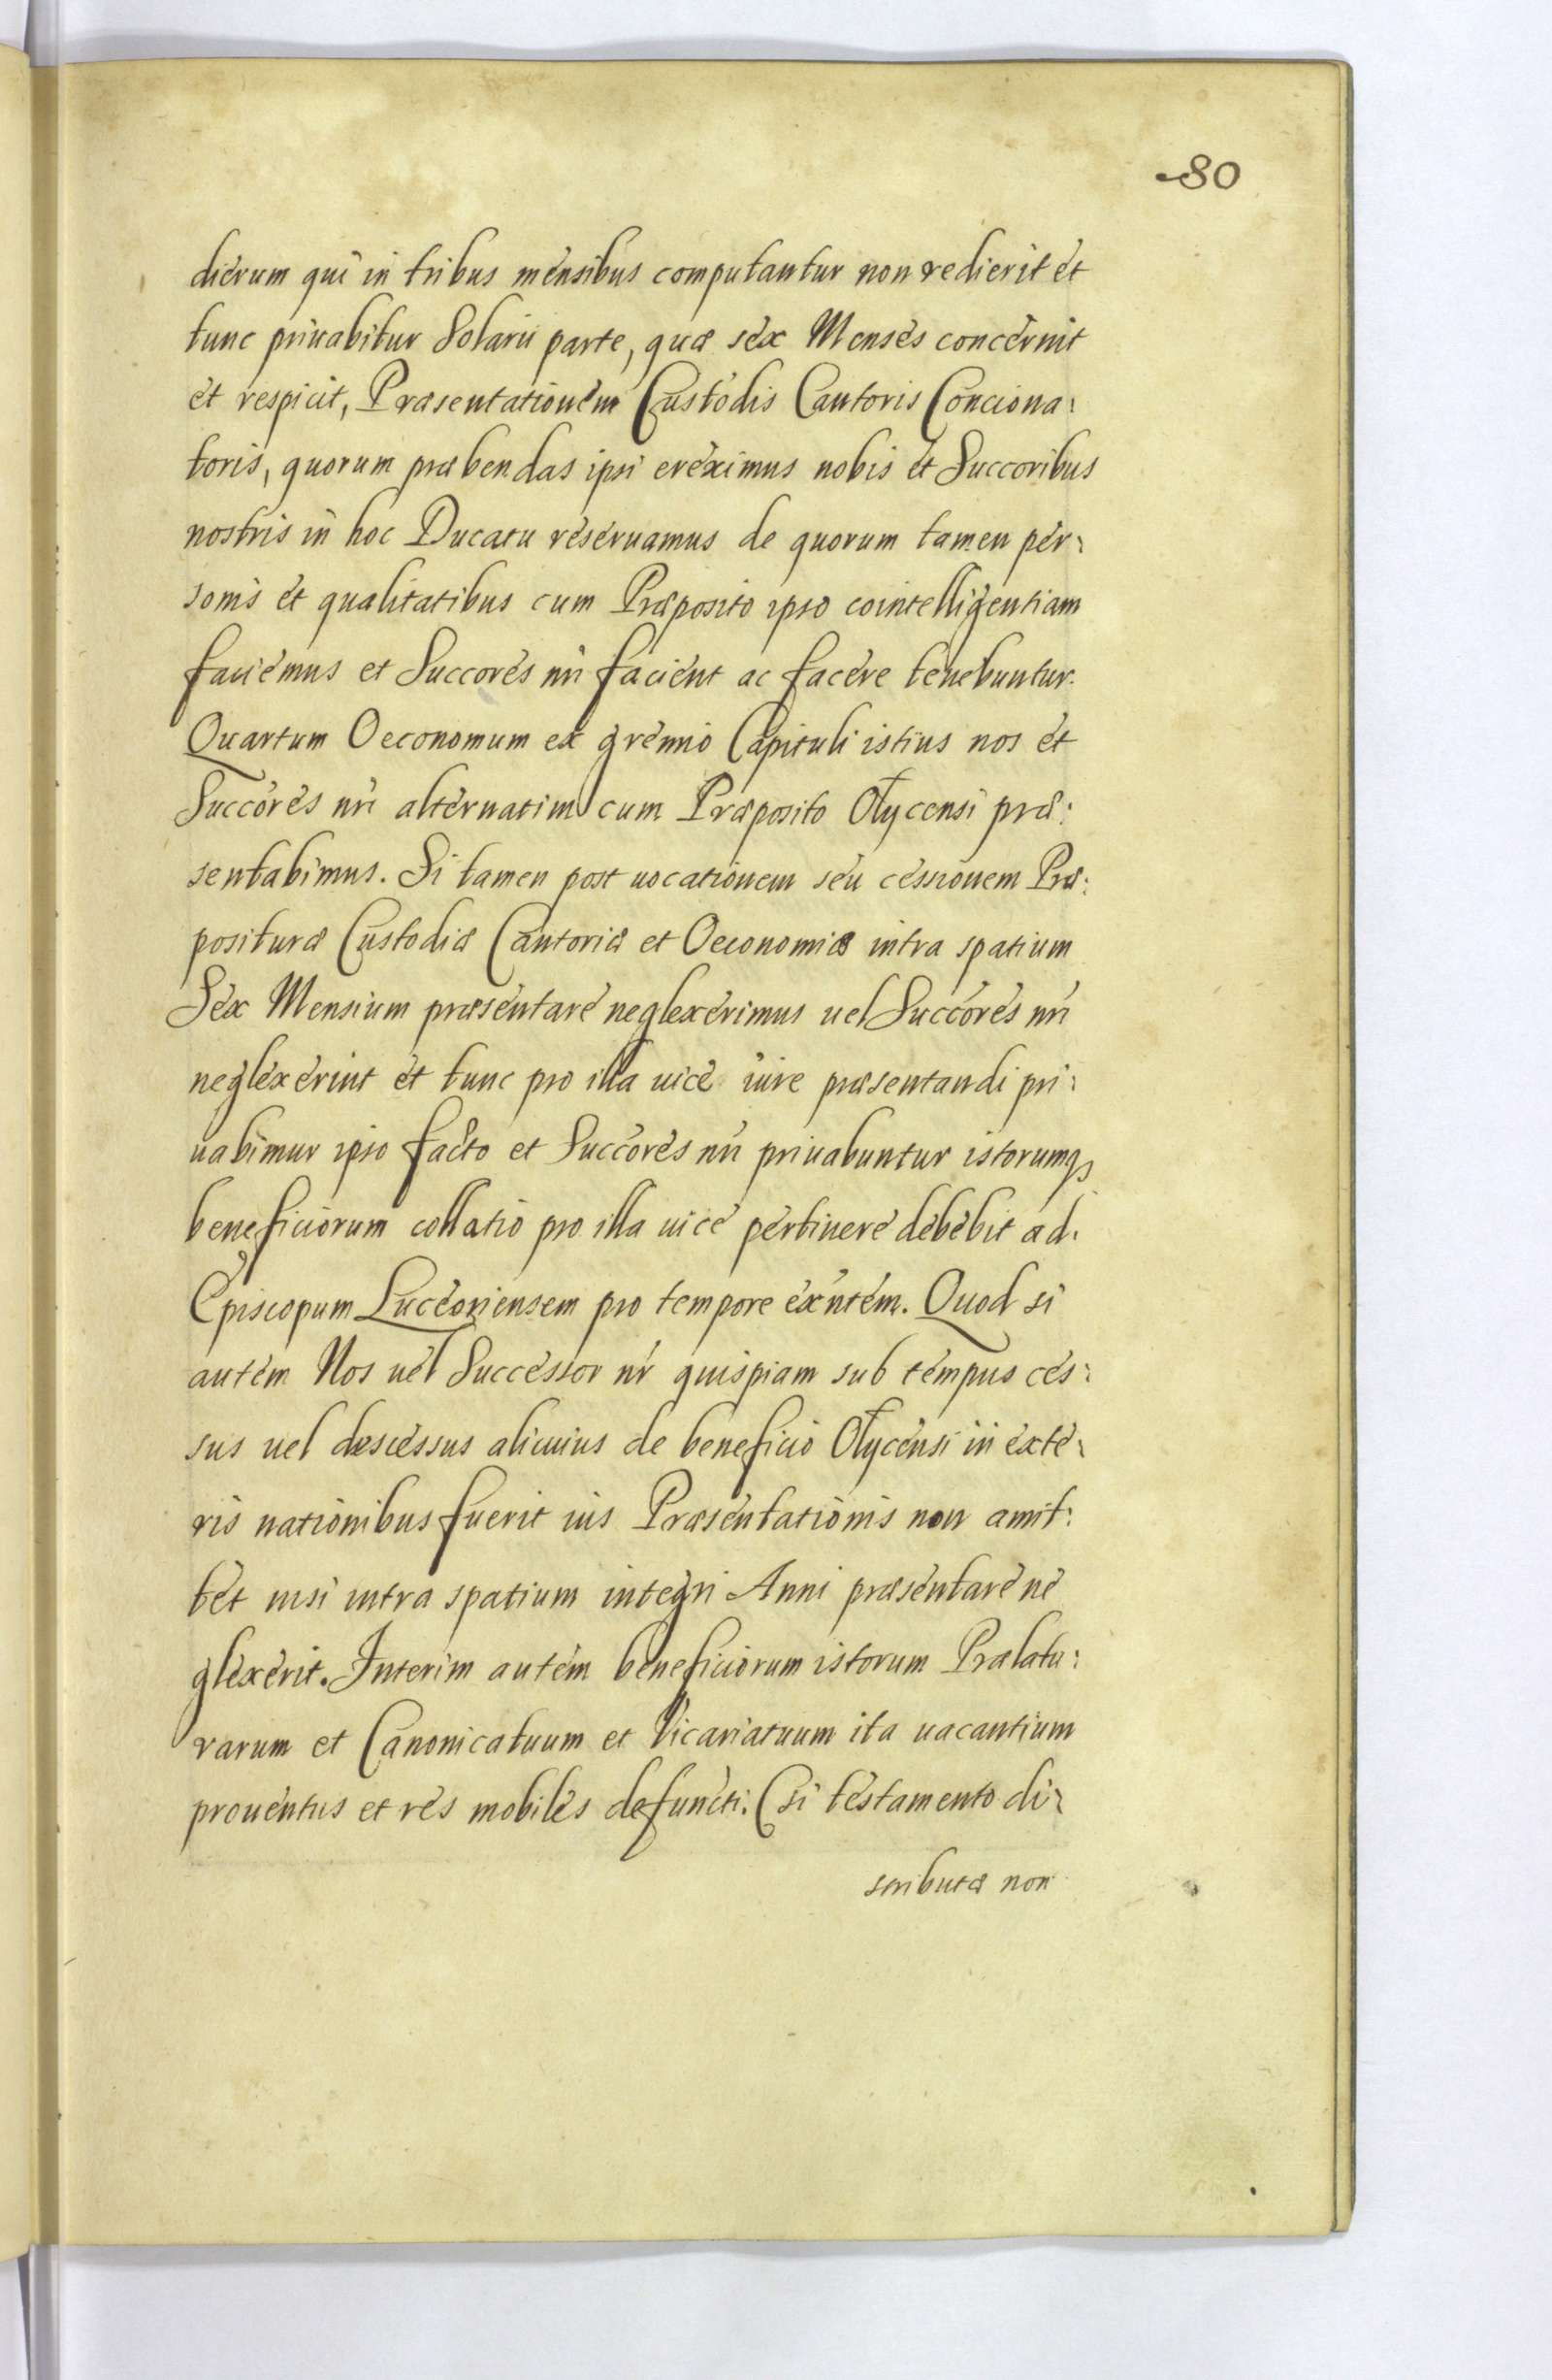 80
dierum qui in tribus mensibus computantur non redierit et
tunc priuabitur Solarii parte, quæ sex Menses concernit
et respicit, Præsentationem Custodis Cantoris Conciona:
toris, quorum præbendas ipsi ereximus nobis et Succoribus
nostris in hoc Ducatu reseruamus de quorum tamen per:
sonis et qualitatibus cum Præposito ipso cointelligentiam
faciemus et Succores nri facient ac facere tenebuntur.
Quartum Oeconomum ex gremio Capituli istius nos et
Succores nri alternatim cum Præposito Olycensi præ:
sentabimus. Si tamen post uocationem seu cessionem Præ:
posituræ Custodiæ Cantoriæ et Oeconomiæ intra spatium
Sex Mensium præsentare neglexerimus uel Succores nri
neglexerint et tunc pro illa uice iure præsentandi pri:
uabimur ipso facto et Succores nri priuabuntur istorumq3
beneficiorum collatio pro illa uice pertinere debebit ad
Episcopum Luceoriensem pro tempore exntem. Quod si
autem Nos uel Successor nr quispiam sub tempus ces:
sus uel descessus alicuius de beneficio Olycensi in exte:
ris nationibus fuerit ius Præsentationis non amit:
tet nisi intra spatium integri Anni præsentare ne
glexerit. Interim autem beneficiorum istorum Prælatu:
rarum et Canonicatuum et Vicariatuum ita uacantium
prouentus et res mobiles defuncti. (si testamento di:
stributæ non